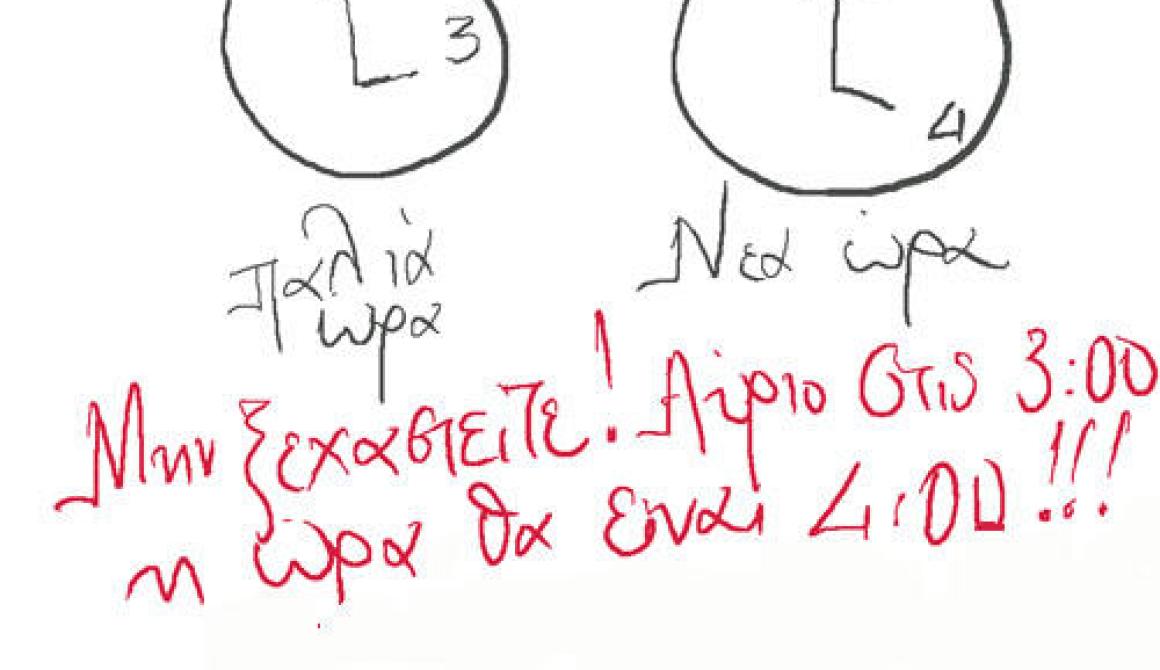 3
4
Παλιά
ώρα
Νεα ώρα
Μην ξεχαστειτε! Αύριο στις 3:00
η ώρα θα είναι 4:00!!!